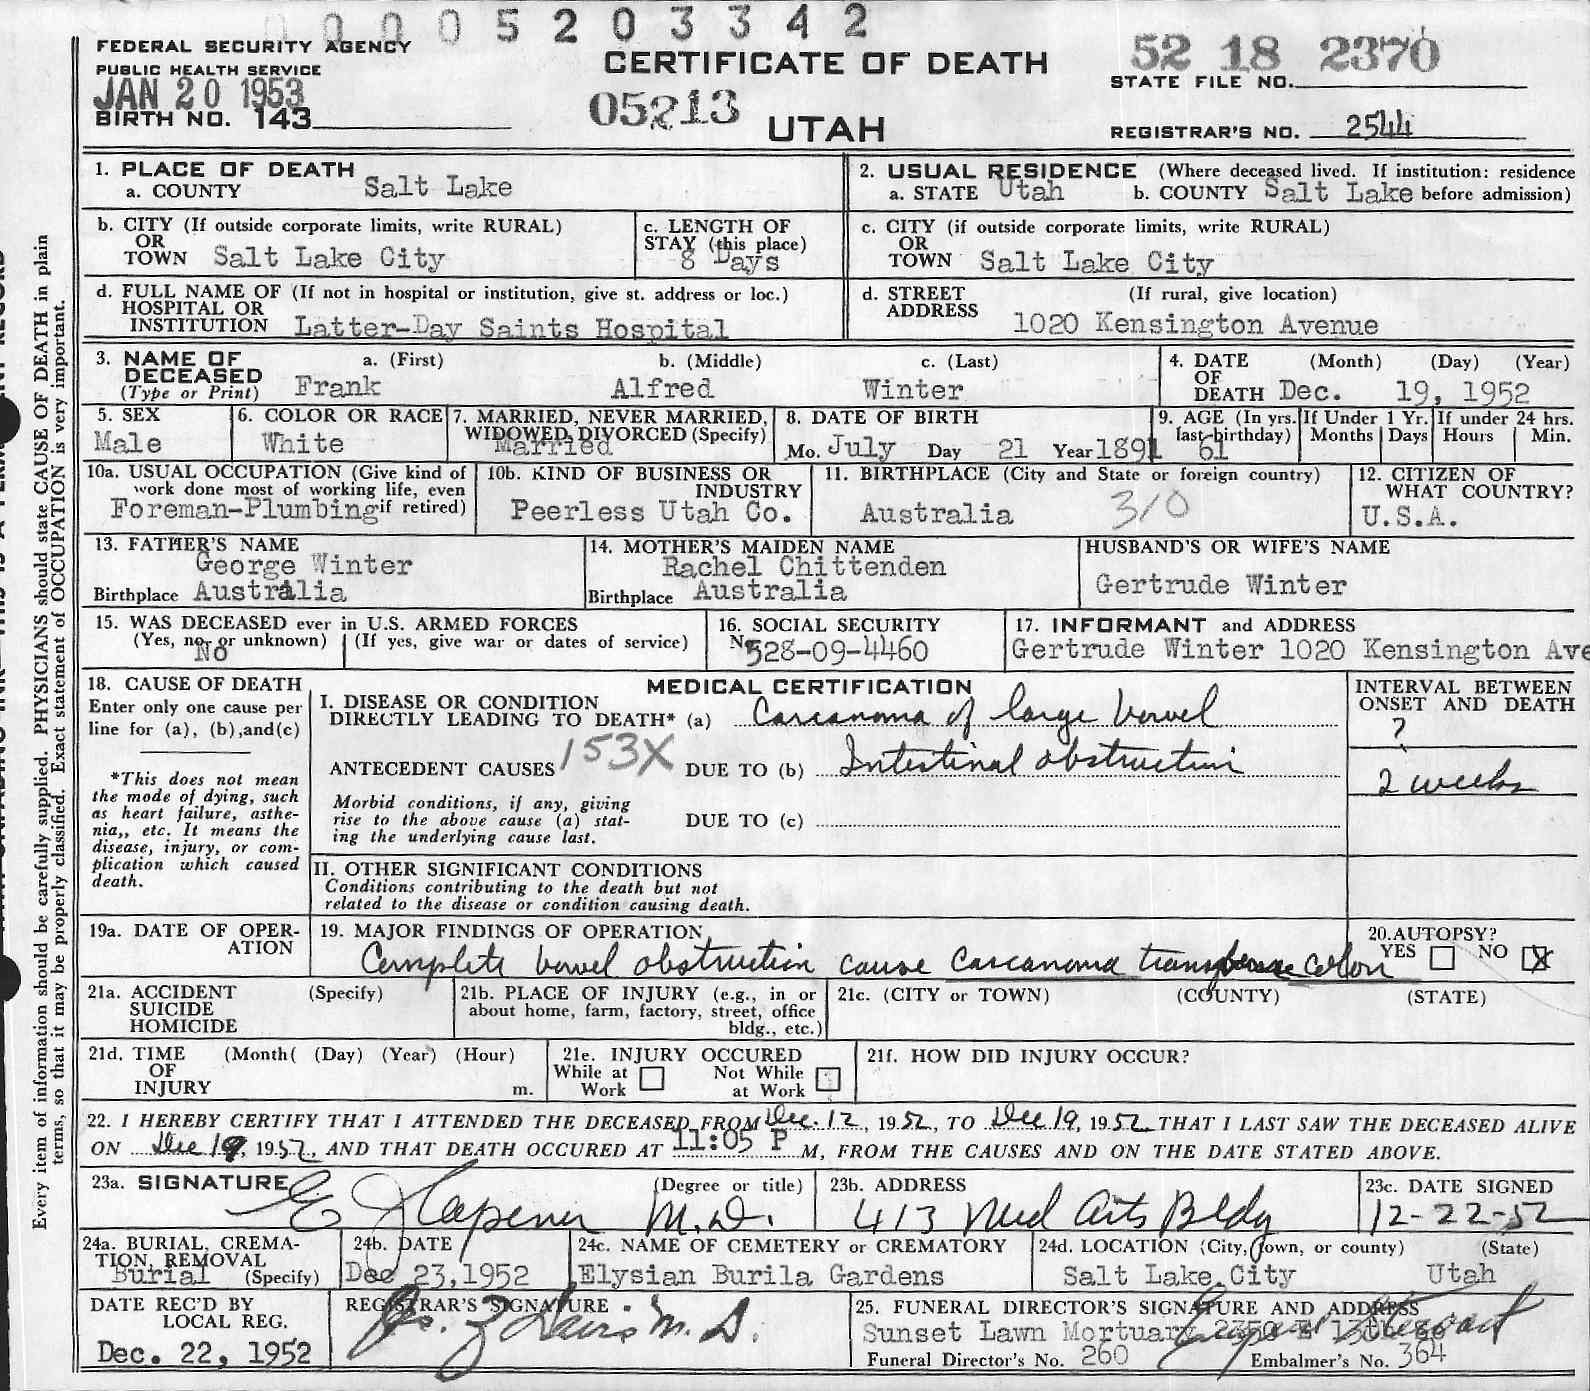 0 0 0 0 5 2 0 3 3 4 2
FEDERAL SECURITY AGENCY
PUBLIC HEALTH SERVICE
JAN 20 1953
BIRTH NO. 143
CERTIFICATE OF DEATH
05213
UTAH
52 18 2370
STATE FILE NO.
REGISTRAR'S NO. 2544
1. PLACE OF DEATH
a. COUNTY Salt Lake
2. USUAL RESIDENCE (Where deceased lived. If institution: residence
a. STATE Utah b. COUNTY Salt Lake before admission)
b. CITY (If outside corporate limits, write RURAL)
OR
TOWN Salt Lake City
c. LENGTH OF
STAY (this place)
8 Days
c. CITY (if outside corporate limits, write RURAL)
OR
TOWN Salt Lake City
d. FULL NAME OF (If not in hospital or institution, give st. address or loc.)
HOSPITAL OR
INSTITUTION Latter-Day Saints Hospital
d. STREET (If rural, give location)
ADDRESS
1020 Kensington Avenue
3. NAME OF a. (First) b. (Middle) c. (Last)
DECEASED Frank Alfred Winter
(Type or Print)
4. DATE (Month) (Day) (Year)
OF
DEATH Dec. 19, 1952
5. SEX
Male
6. COLOR OR RACE
White
7. MARRIED, NEVER MARRIED,
WIDOWED, DIVORCED (Specify)
Married
8. DATE OF BIRTH
Mo. July Day 21 Year 1891
9. AGE (In yrs.
last birthday)
61
If Under 1 Yr.
Months Days
If under 24 hrs.
Hours Min.
10a. USUAL OCCUPATION (Give kind of
work done most of working life, even
Foreman-Plumbing if retired)
10b. KIND OF BUSINESS OR
INDUSTRY
Peerless Utah Co.
11. BIRTHPLACE (City and State or foreign country)
Australia 310
12. CITIZEN OF
WHAT COUNTRY?
U.S.A.
13. FATHER'S NAME
George Winter
Birthplace Australia
14. MOTHER'S MAIDEN NAME
Rachel Chittenden
Birthplace Australia
HUSBAND'S OR WIFE'S NAME
Gertrude Winter
15. WAS DECEASED ever in U.S. ARMED FORCES
(Yes, no, or unknown) (If yes, give war or dates of service)
No
16. SOCIAL SECURITY
No. 528-09-4460
17. INFORMANT and ADDRESS
Gertrude Winter 1020 Kensington Ave
18. CAUSE OF DEATH
Enter only one cause per
line for (a), (b), and (c)
*This does not mean
the mode of dying, such
as heart failure, asthe-
nia,, etc. It means the
disease, injury, or com-
plication which caused
death.
MEDICAL CERTIFICATION
I. DISEASE OR CONDITION
DIRECTLY LEADING TO DEATH* (a) Carcanoma of large bowel
153X
ANTECEDENT CAUSES DUE TO (b) Intestinal obstruction
Morbid conditions, if any, giving
rise to the above cause (a) stat-
ing the underlying cause last.
DUE TO (c)
INTERVAL BETWEEN
ONSET AND DEATH
?
2 weeks
II. OTHER SIGNIFICANT CONDITIONS
Conditions contributing to the death but not
related to the disease or condition causing death.
19a. DATE OF OPER-
ATION
19. MAJOR FINDINGS OF OPERATION
Complete bowel obstruction cause carcanoma transverse colon
20. AUTOPSY?
YES NO X
21a. ACCIDENT (Specify)
SUICIDE
HOMICIDE
21b. PLACE OF INJURY (e.g., in or
about home, farm, factory, street, office
bldg., etc.)
21c. (CITY or TOWN) (COUNTY) (STATE)
21d. TIME (Month( (Day) (Year) (Hour)
OF
INJURY m.
21e. INJURY OCCURED
While at Not While
Work at Work
21f. HOW DID INJURY OCCUR?
22. I HEREBY CERTIFY THAT I ATTENDED THE DECEASED FROM Dec. 12, 1952, TO Dec 19, 1952 THAT I LAST SAW THE DECEASED ALIVE
ON Dec 19, 1952, AND THAT DEATH OCCURED AT 11:05 P M, FROM THE CAUSES AND ON THE DATE STATED ABOVE.
23a. SIGNATURE (Degree or title)
M.D.
23b. ADDRESS
413 Med Arts Bldg
23c. DATE SIGNED
12-22-52
24a. BURIAL, CREMA-
TION, REMOVAL
Burial (Specify)
24b. DATE
Dec 23, 1952
24c. NAME OF CEMETERY or CREMATORY
Elysian Burila Gardens
24d. LOCATION (City, town, or county) (State)
Salt Lake City Utah
DATE REC'D BY
LOCAL REG.
Dec. 22, 1952
REGISTRAR'S SIGNATURE
M.D.
25. FUNERAL DIRECTOR'S SIGNATURE AND ADDRESS
Sunset Lawn Mortuary 2350 E 13th So
Funeral Director's No. 260 Embalmer's No. 364
Every item of information should be carefully supplied. PHYSICIANS should state CAUSE OF DEATH in plain
terms, so that it may be properly classified. Exact statement of OCCUPATION is very important.